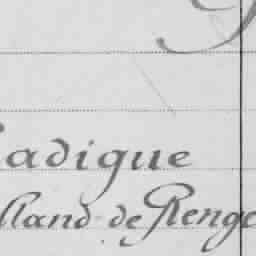 adique
lland de Reng